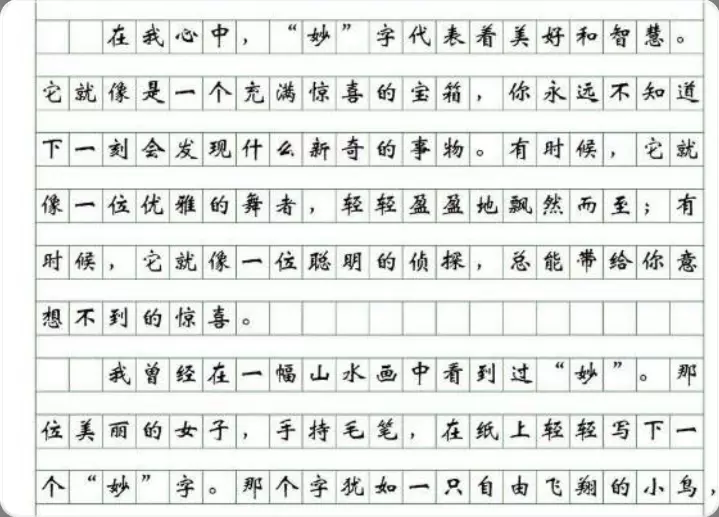 在我心中，“妙”字代表着美好和智慧。
它就像是一个充满惊喜的宝箱，你永远不知道
下一刻会发现什么新奇的事物。有时候，它就
像一位优雅的舞者，轻轻盈盈地飘然而至；有
时候，它就像一位聪明的侦探，总能带给你意
想不到的惊喜。
我曾经在一幅山水画中看到过“妙”。那
位美丽的女子，手持毛笔，在纸上轻轻写下一
个“妙”字。那个字犹如一只自由飞翔的小鸟，